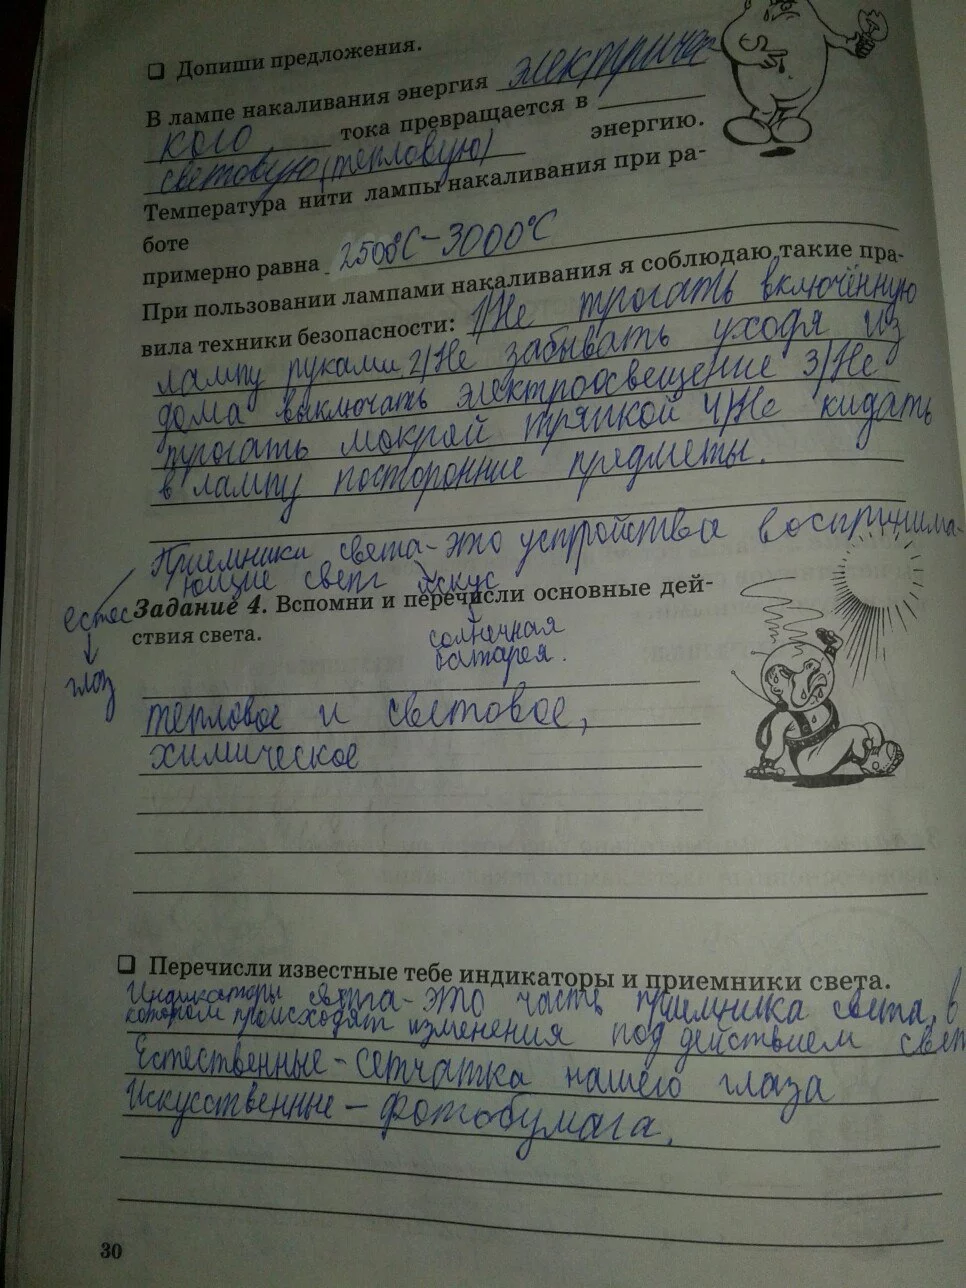 ❏ Допиши предложения.
В лампе накаливания энергия электричес
кого тока превращается в
световую (тепловую) энергию.
Температура нити лампы накаливания при ра-
боте
примерно равна 2500°С - 3000°С
При пользовании лампами накаливания я соблюдаю такие пра-
вила техники безопасности: 1) Не трогать включённую
лампу руками 2) Не забывать уходя из
дома выключать электроосвещение 3) Не
трогать мокрой тряпкой 4) Не кидать
в лампу посторонние предметы.
Приемники света - это устройства воспринима-
ющие свет искус
естес
Задание 4. Вспомни и перечисли основные дей-
ствия света.
солнечная
батарея.
глаз
тепловое и световое,
химическое
❏ Перечисли известные тебе индикаторы и приемники света.
Индикаторы света - это часть приемника света, в
котором происходят изменения под действием свет
Естественные - сетчатка нашего глаза
Искусственные - фотобумага.
30